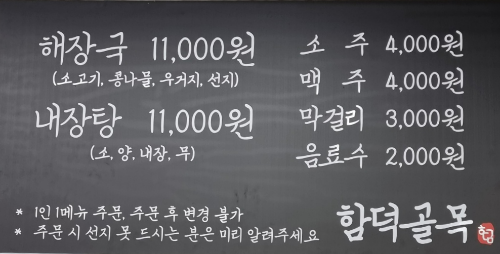 해장국 11,000원
(소고기, 콩나물, 우거지, 선지)
내장탕 11,000원
(소, 양, 내장, 무)
소 주 4,000원
맥 주 4,000원
막걸리 3,000원
음료수 2,000원
* 1인 1메뉴 주문, 주문 후 변경 불가
* 주문 시 선지 못 드시는 분은 미리 알려주세요
함덕골목